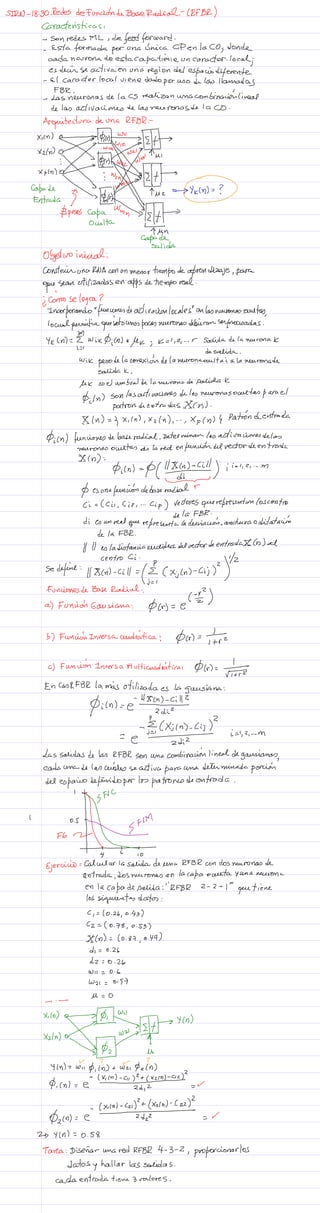 SIRN-18:30 Redes de Función de Base Radial - (RFBR)
Características:
- Son redes ML, de feed forward.
- Esta formada por una única CP en la CO, donde
cada neurona de esta capa tiene un caracter local;
es decir, se activa en una región del espacio diferente.
- El caracter local viene dado por uso de las llamadas
FBR.
- Las neuronas de la CS realizan una combinación lineal
de las activaciones de las neuronas de la CO.
Arquitectura de una RFBR-
X1(n)
X2(n)
Xp(n)
Capa de
Entrada
Capa
Oculta
Capa de
Salida
YK(n) = ?
Objetivo inicial:
Construir una RNA con un menor tiempo de aprendizaje, para
que sean utilizadas en apps de tiempo real.
¿Como se logra?
Incorporando "funciones de activación locales" en las neuronas ocultas,
lo cual permitia que solo unas pocas neuronas debieran ser procesadas.
YK(n) = Σ wiK Φi(n) + μK ; K=1,2,...r Salida de la neurona K
de salida.
wiK peso de la conexión de la neurona oculta i a la neurona de
salida K.
μK es el umbral de la neurona de salida K
Φi(n) Son las activaciones de las neuronas ocultas para el
patrón de entradas X(n).
X(n) = { X1(n), X2(n), ..., Xp(n) } Patrón de entrada
Φi(n) funciones de base radial. Determinan las activaciones de las
neuronas ocultas de la red en función del vector de entrada
X(n):
Φi(n) = Φ( ||X(n) - Ci|| / di ) ; i=1,2,... m
Φ es una función de base radial
Ci = (Ci1, Ci2, ... Cip) Vectores que representan los centros
de la FBR.
di es un real que representa la desviación, anchura o dilatación
de la FBR.
|| || es la distancia euclídea del vector de entrada X(n) al
centro Ci.
Se define: ||X(n) - Ci|| = ( Σ (Xj(n) - Cij)² )^1/2
Funciones de Base Radial:
a) Función Gausiana: Φ(r) = e^(-r²/2)
b) Función Inversa cuadrática: Φ(r) = 1/(1+r²)
c) Función Inversa Multicuadrática: Φ(r) = 1/√(1+r²)
En las RFBR la más utilizada es la gausiana:
Φi(n) = e^(-||X(n) - Ci||² / 2di²)
= e^(-Σ(Xj(n) - Cij)² / 2di²) i=1,2,...m
Las salidas de las RFBR son una combinación lineal de gausianas,
cada una de las cuales se activa para una determinada porción
del espacio definido por los patrones de entrada.
1
FIC
0.5
FIM
FG
10
Ejercicio: Calcular la salida de una RFBR con dos neuronas de
entrada, dos neuronas en la capa oculta y una neurona
en la capa de salida: "RFBR 2-2-1" que tiene
los siguientes datos:
C1 = (0.26, 0.43)
C2 = (0.78, 0.53)
X(n) = (0.87, 0.49)
d1 = 0.26
d2 = 0.26
w11 = 0.6
w21 = 0.59
μ = 0
X1(n) Φ1 w11
Σ f Y(n)
X2(n) Φ2 w21
μ
Y(n) = w11 Φ1(n) + w21 Φ2(n)
Φ1(n) = e^(-(X1(n) - C11)² + (X2(n) - C12)² / 2d1²) = ✓
Φ2(n) = e^(-(X1(n) - C21)² + (X2(n) - C22)² / 2d2²) = ✓
Y(n) = 0.58
Tarea: Diseñar una red RFBR 4-3-2, proporcionarles
datos y hallar las salidas.
cada entrada tiene 3 valores.